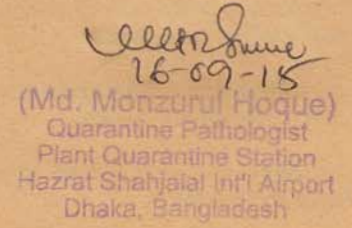 16-09-15
(Md. Monzurul Hoque)
Quarantine Pathologist
Plant Quarantine Station
Hazrat Shahjalal Int'l Airport
Dhaka, Bangladesh